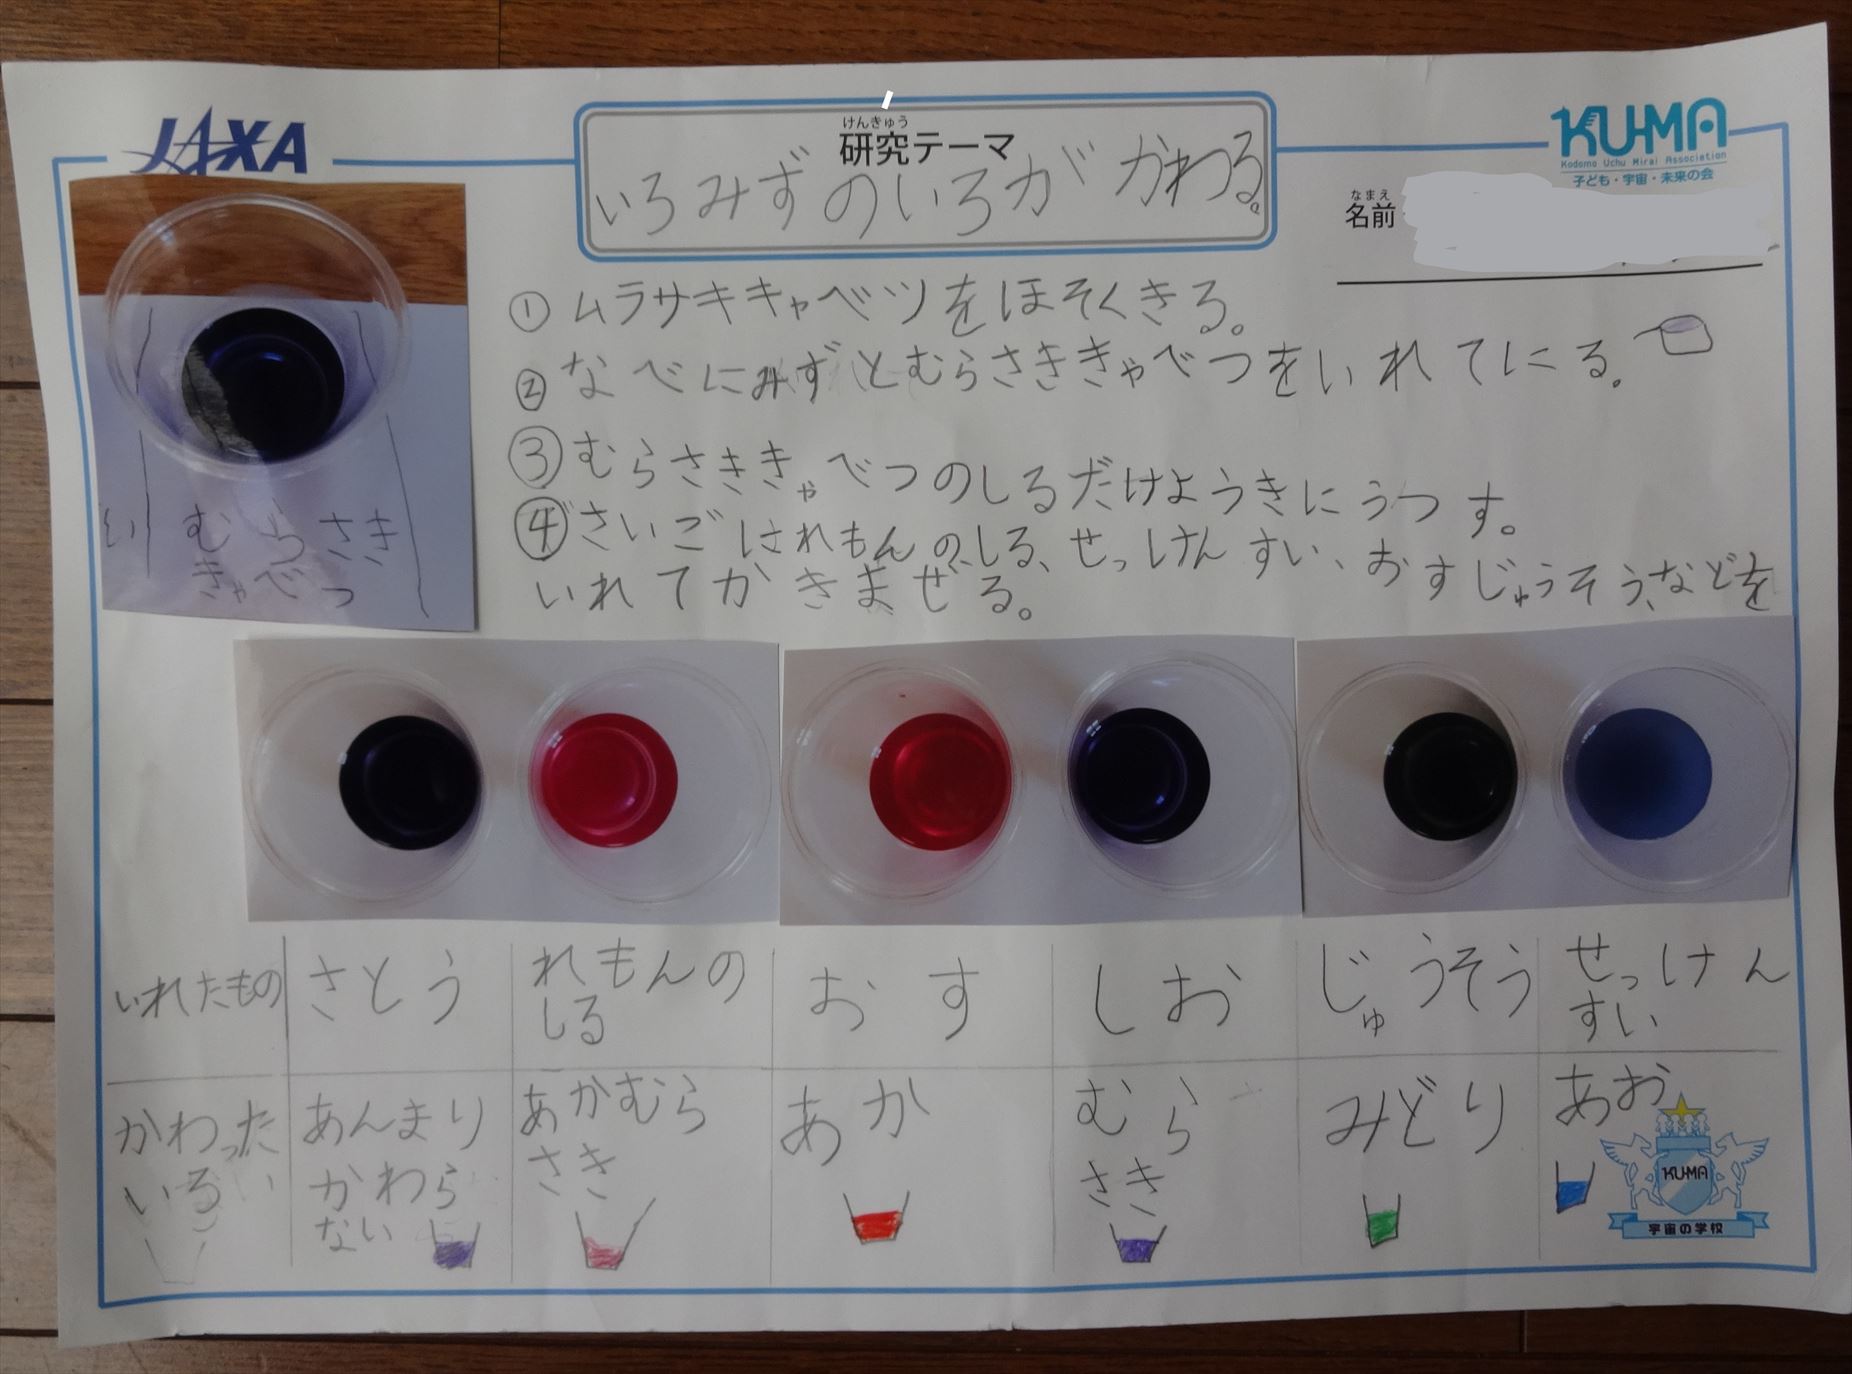 JAXA
けんきゅう
研究テーマ
いろみずのいろがかわる。
KUMA
Kodomo Uchu Mirai Association
子ども・宇宙・未来の会
なまえ
名前
① ムラサキキャベツをほそくきる。
② なべにみずとむらさききゃべつをいれてにる。
③ むらさききゃべつのしるだけようきにうつす。
④ さいごはれもんのしる、せっけんすい、おすじゅうそう、などを
いれてかきまぜる。
むらさき
きゃべつ
いれたもの
さとう
れもんの
しる
おす
しお
じゅうそう
せっけん
すい
かわった
いろ
あんまり
かわら
ない
あかむら
さき
あか
むら
さき
みどり
あお
KUMA
宇宙の学校